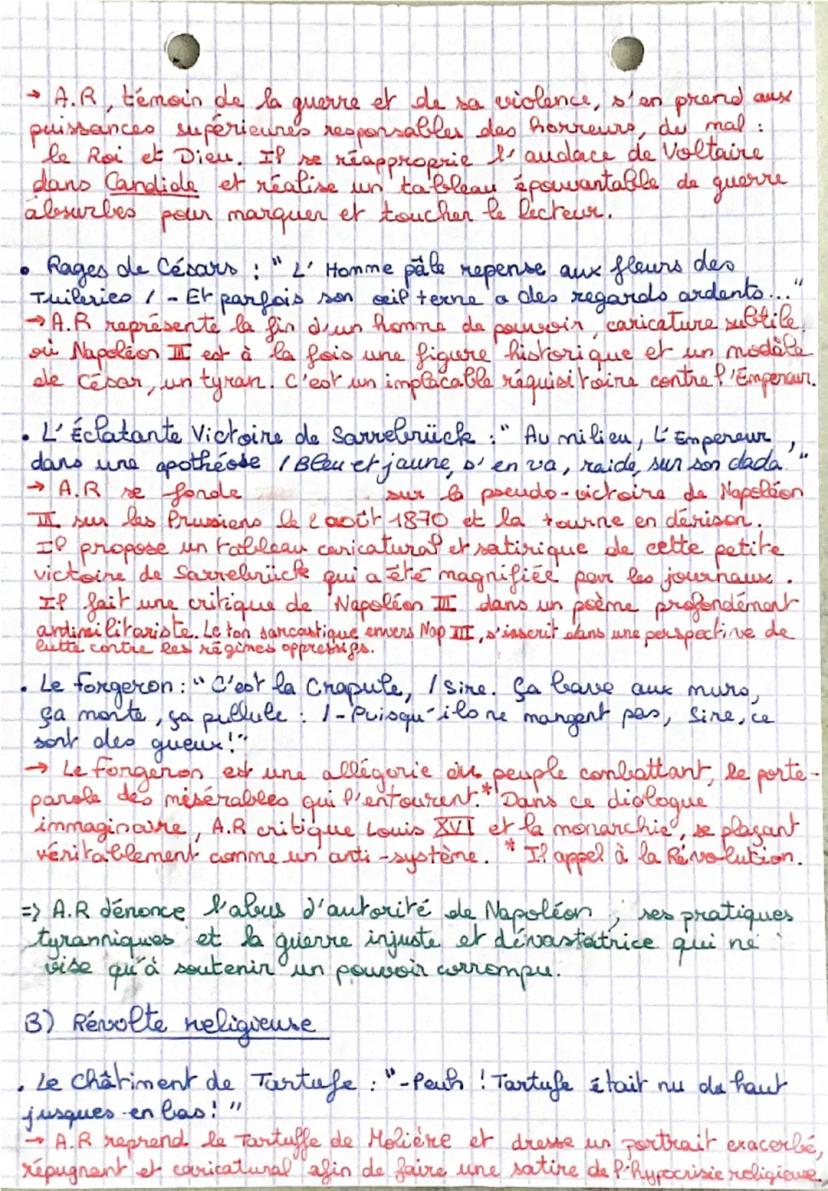 → A.R, témoin de la guerre et de sa violence, s'en prend aux
puissances supérieures responsables des horreurs, du mal :
le Roi et Dieu. Il se réapproprie l'audace de Voltaire
dans Candide et réalise un tableau épouvantable de guerre
absurbes pour marquer et toucher le lecteur.
• Rages de Césars : " L'Homme pâle repense aux fleurs des
Tuileries / - Et parfois son œil terne a des regards ardents..."
→ A.R représente la fin d'un homme de pouvoir, caricature subtile,
où Napoléon III est à la fois une figure historique et un modèle
de César, un tyran. C'est un implacable réquisitoire contre l'Empereur.
• L'Éclatante Victoire de Sarrebrück : " Au milieu, L'Empereur,
dans une apothéose / Bleu et jaune, s'en va, raide, sur son dada "
→ A.R se fonde sur la pseudo-victoire de Napoléon
III sur les Prussiens le 2 août 1870 et la tourne en dérison.
Il propose un tableau caricatural et satirique de cette petite
victoire de Sarrebrück qui a été magnifiée par les journaux.
Il fait une critique de Napoléon III dans un poème profondément
antimilitariste. Le ton sarcastique envers Nap III, s'inscrit dans une perspective de
lutte contre les régimes oppressifs.
• Le Forgeron : " C'est la Crapule, / Sire. Ça bave aux murs,
ça monte, ça pullule : / - Puisqu'ils ne mangent pas, Sire, ce
sont des gueux ! "
→ Le Forgeron est une allégorie du peuple combattant, le porte-
parole des misérables qui l'entourent.* Dans ce dialogue
immaginaire, A.R critique Louis XVI et la monarchie, se plaçant
véritablement comme un anti-système. * Il appel à la Révolution.
=> A.R dénonce l'abus d'autorité de Napoléon, ses pratiques
tyranniques et la guerre injuste et dévastatrice qui ne
vise qu'à soutenir un pouvoir corrompu.
B) Révolte religieuse
• Le Châtiment de Tartufe : "- Peuh ! Tartufe était nu du haut
jusques en bas ! "
→ A.R reprend le Tartuffe de Molière et dresse un portrait exacerbé,
répugnant et caricatural afin de faire une satire de l'hypocrisie religieuse.